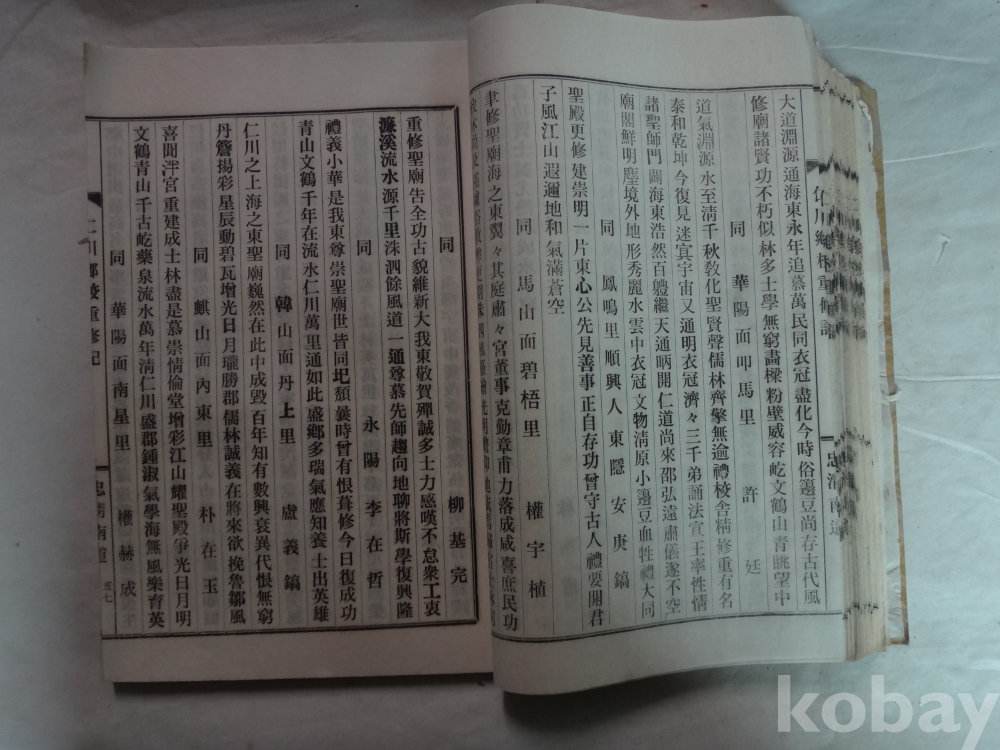 大道淵源通海東永年追慕萬民同衣冠盡化今時俗籩豆尚存古代風
修廟諸賢功不朽似林多士學無窮畵樑粉壁威容屹文鶴山青眺望中
同 華陽面叩馬里 許 廷
道氣淵源水至淸千秋敎化聖賢聲儒林齊擎無逾禮校舍精修重有名
泰和乾坤今復見迷寘宇宙又通明衣冠濟々三千弟誦法宣王率性情
諸聖師門闢海東浩然百軆繼天通昞開仁道尚來邵弘遠肅儀邃不空
廟閣鮮明塵境外地形秀麗水雲中衣冠文物淸原小籩豆血牲禮大同
同 鳳鳴里順興人東隱安庚鎬
聖殿更修建崇明一片東心公先見善事正自存功曾守古人禮要開君
子風江山遐邇地和氣滿蒼空
同 馬山面碧梧里 權宇植
聿修聖廟海之東翼々其庭肅々宮董事克勤章甫力落成咸喜庶民功
同 柳基完
重修聖廟告全功古貌維新大我東敬賀殫誠多士力感嘆不怠衆工衷
濂溪流水源千里洙泗餘風道一通尊慕先師趨向地聊將斯學復興隆
同 永陽李在哲
禮義小華是我東尊崇聖廟世皆同圮頹曩時曾有恨葺修今日復成功
靑山文鶴千年在流水仁川萬里通如此盛鄕多瑞氣應知養士出英雄
同 韓山面丹上里 盧義鎬
仁川之上海之東聖廟巍然在此中成毀百年知有數興衰異代恨無窮
丹簷揚彩星辰動碧瓦增光日月朧勝郡儒林誠義在將來欲挽魯鄒風
同 麒山面內東里 朴在玉
喜聞泮宮重建成士林盡是慕崇情倫堂增彩江山耀聖殿爭光日月明
文鶴靑山千古屹藥泉流水萬年淸仁川盛郡鍾淑氣學海無風樂育英
同 華陽面南星里 權赫成
忠淸南道 五七
忠淸南道
kobay